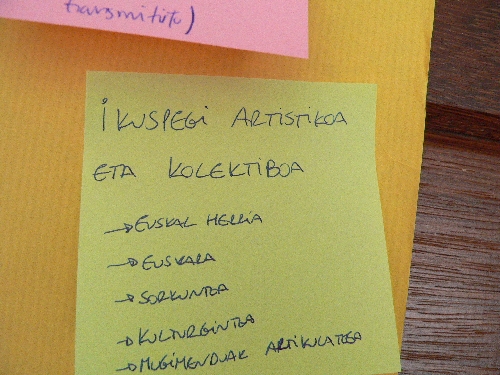 transmititu)
iKUSPEGi ARTiSTiKOA
ETA KOLEKTiBOA
→ EUSKAL HERRIA
→ EUSKARA
→ SORKUNTZA
→ KULTURGINTZA
→ MUGIMENDUAK ARTIKULATZEA